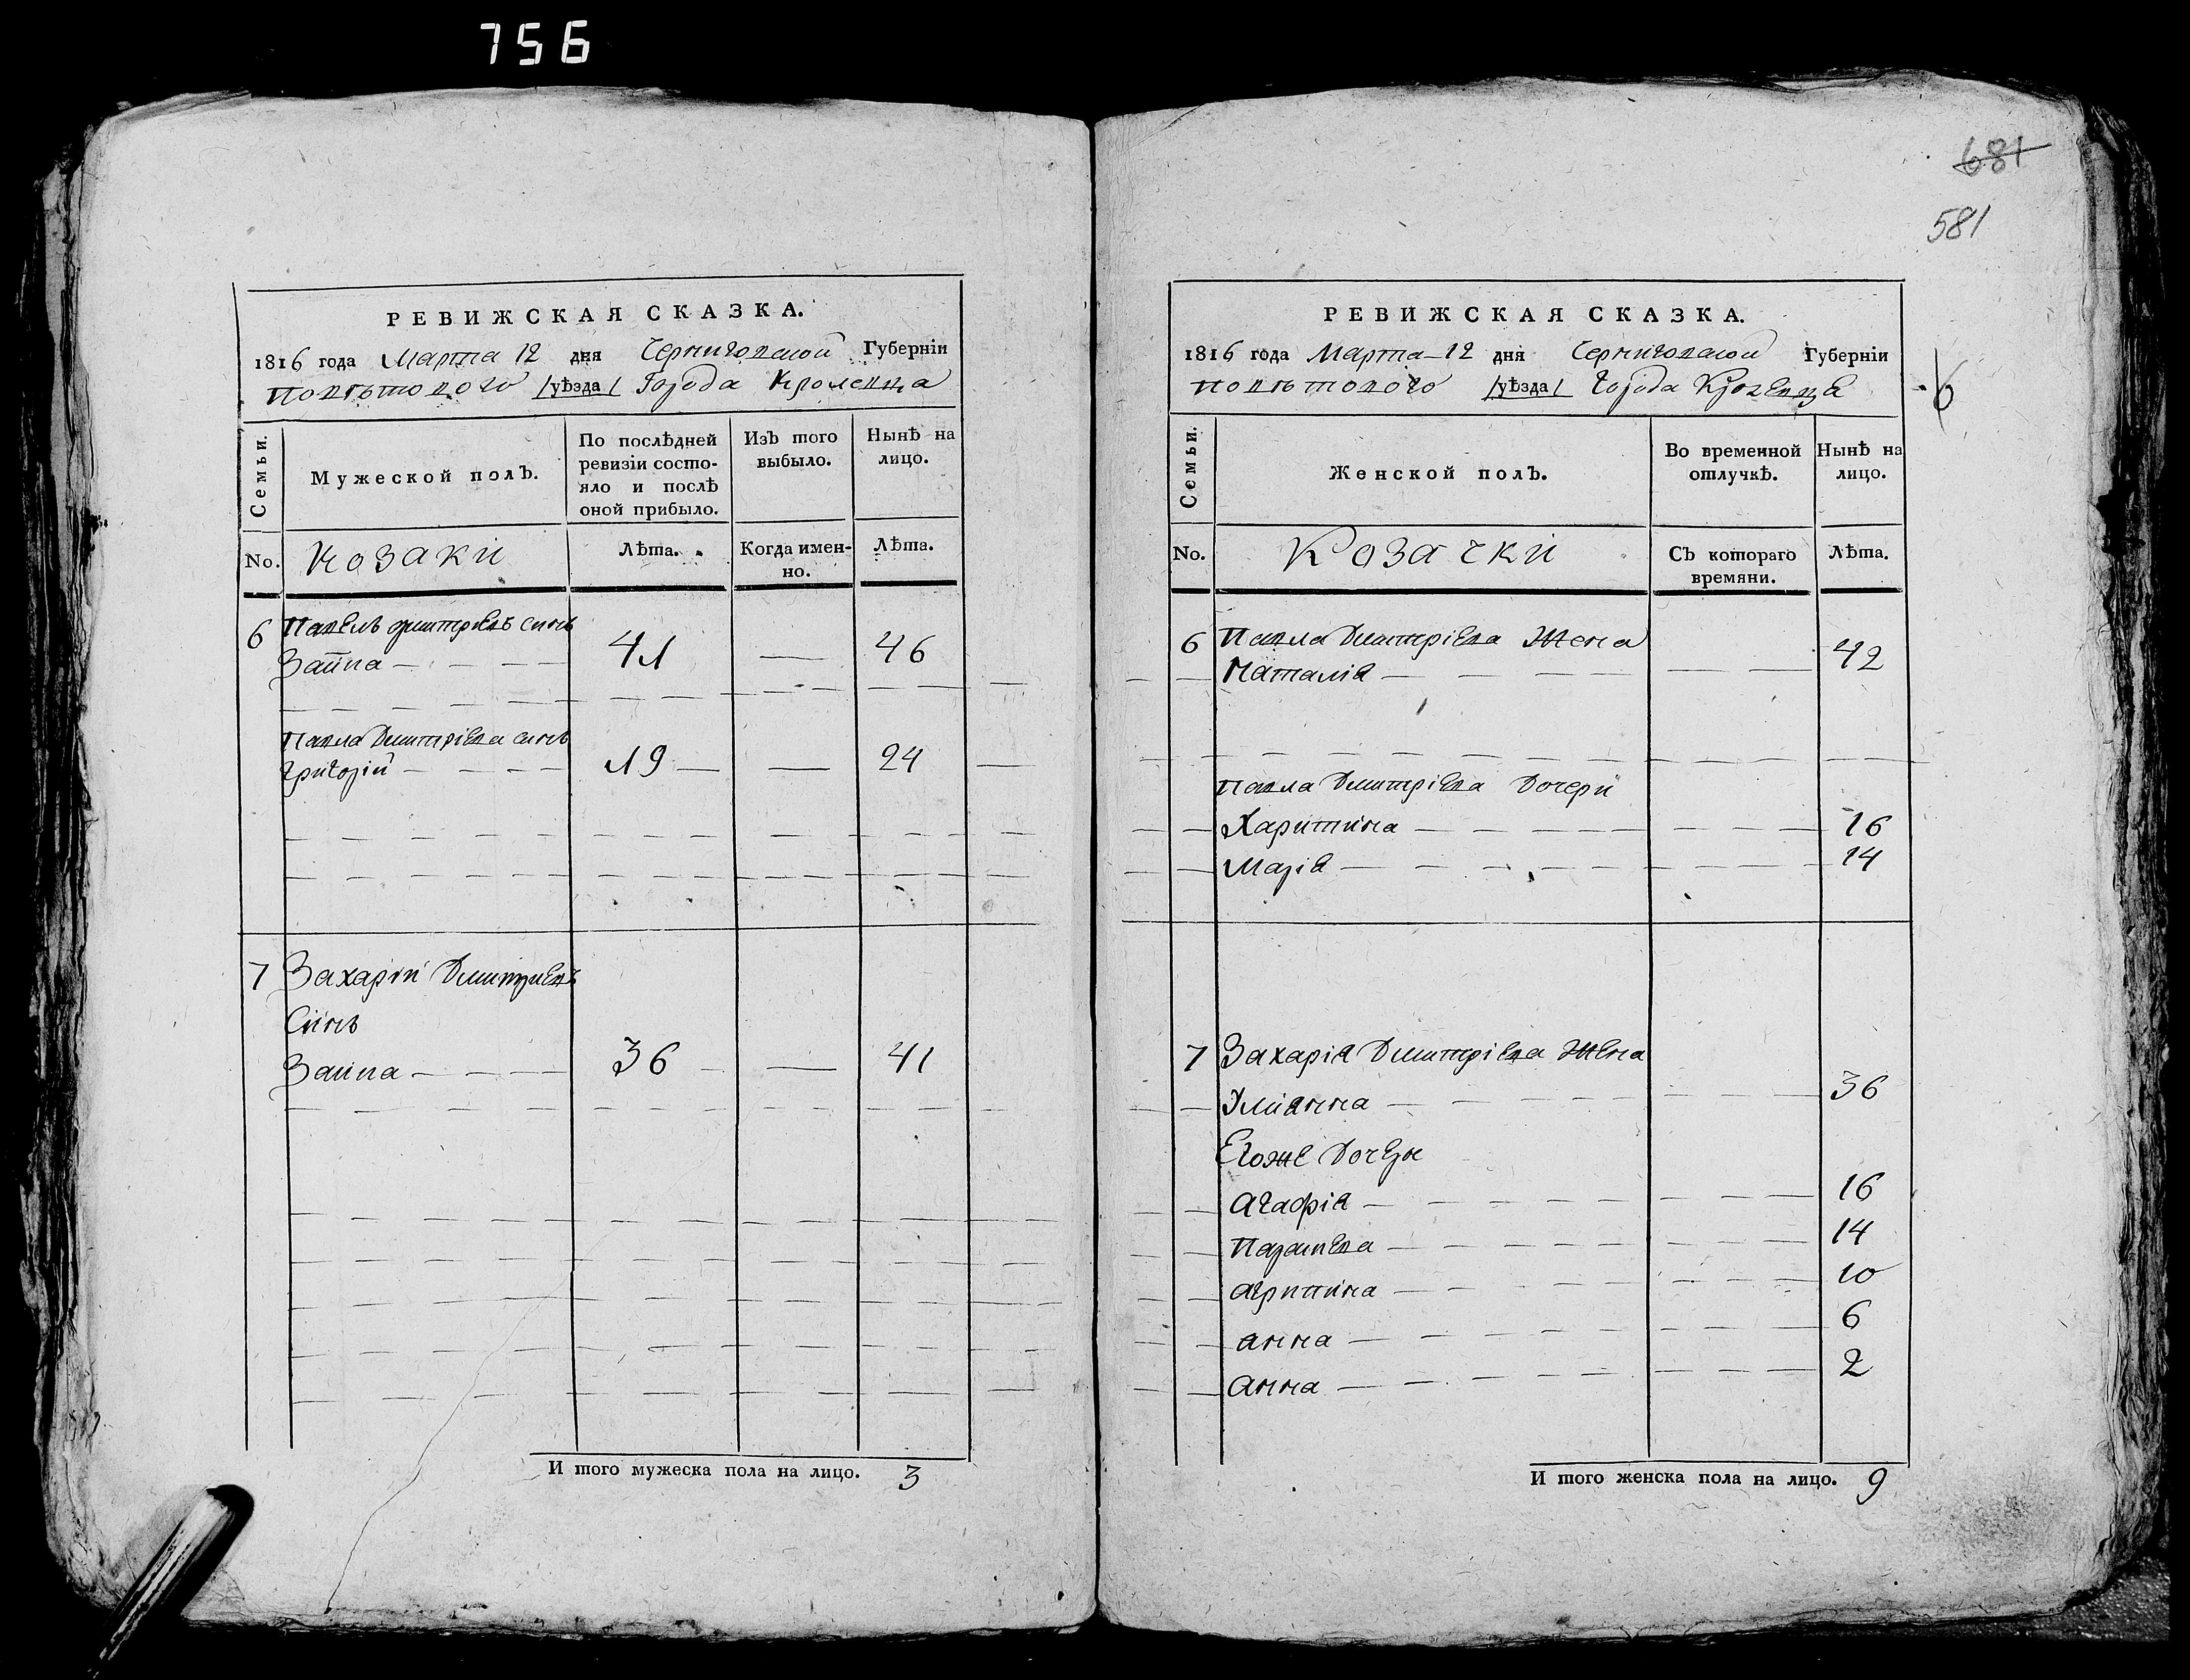 756
681
581
РЕВИЖСКАЯ СКАЗКА.
1816 года Марта 12 дня Черниговской Губерніи
Повѣтового /уѣзда/ Города Кролевца
Семьи.
Мужеской полъ.
По послѣдней
ревизіи состо-
яло и послѣ
оной прибыло.
Изъ того
выбыло.
Нынѣ на
лицо.
No. Козаки Лѣта. Когда имен-
но. Лѣта.
6 Павелъ Дмитриевъ синъ
Зайпа 41 46
Павла Дмитріева синъ
Григорій 19 24
7 Захарій Дмитриевъ
Синъ
Заипа 36 41
И того мужеска пола на лицо. 3
РЕВИЖСКАЯ СКАЗКА.
1816 года Марта 12 дня Черниговской Губерніи
Повѣтового /уѣзда/ города Кролевца
6
Семьи.
Женской полъ.
Во временной
отлучкѣ.
Нынѣ на
лицо.
No. Козачки Съ котораго
времяни. Лѣта.
6 Павла Дмитріева Жена
Наталія 42
Павла Дмитріева Дочери
Харитина 16
Марія 14
7 Захарія Дмитріева Жена
Улианна 36
Егоже Дочери
Агафія 16
Параскева 14
Агрипина 10
Анна 6
Анна 2
И того женска пола на лицо. 9